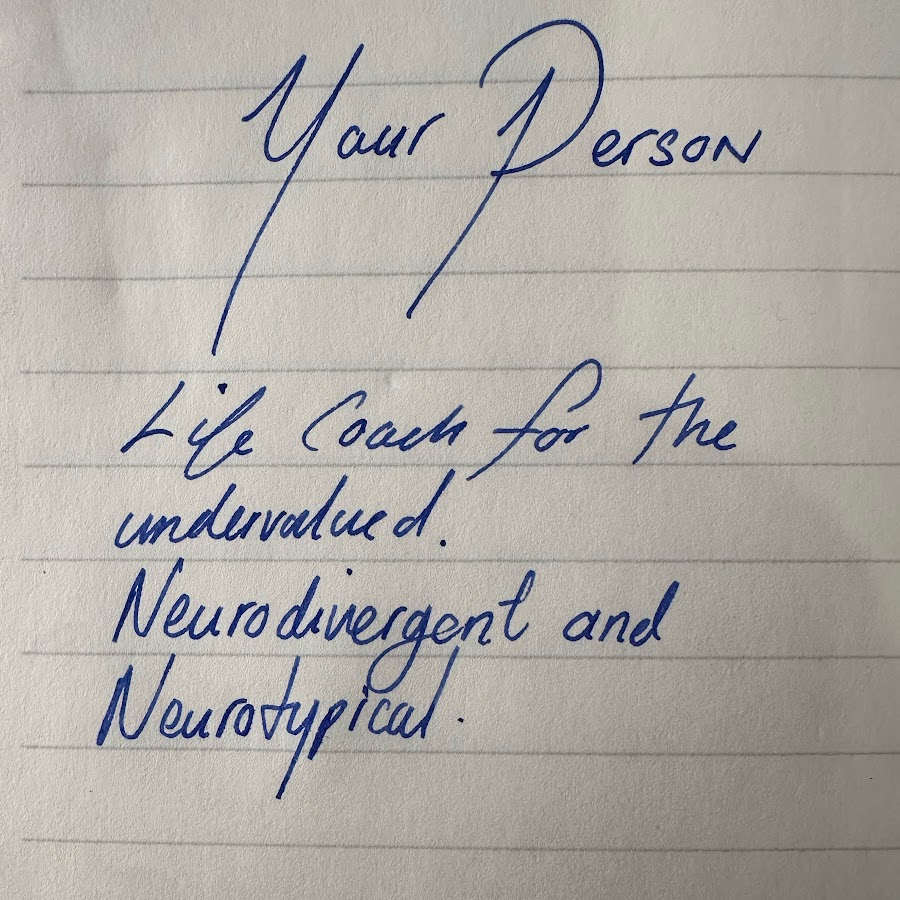 Your Person
Life Coach for the
undervalued.
Neurodivergent and
Neurotypical.